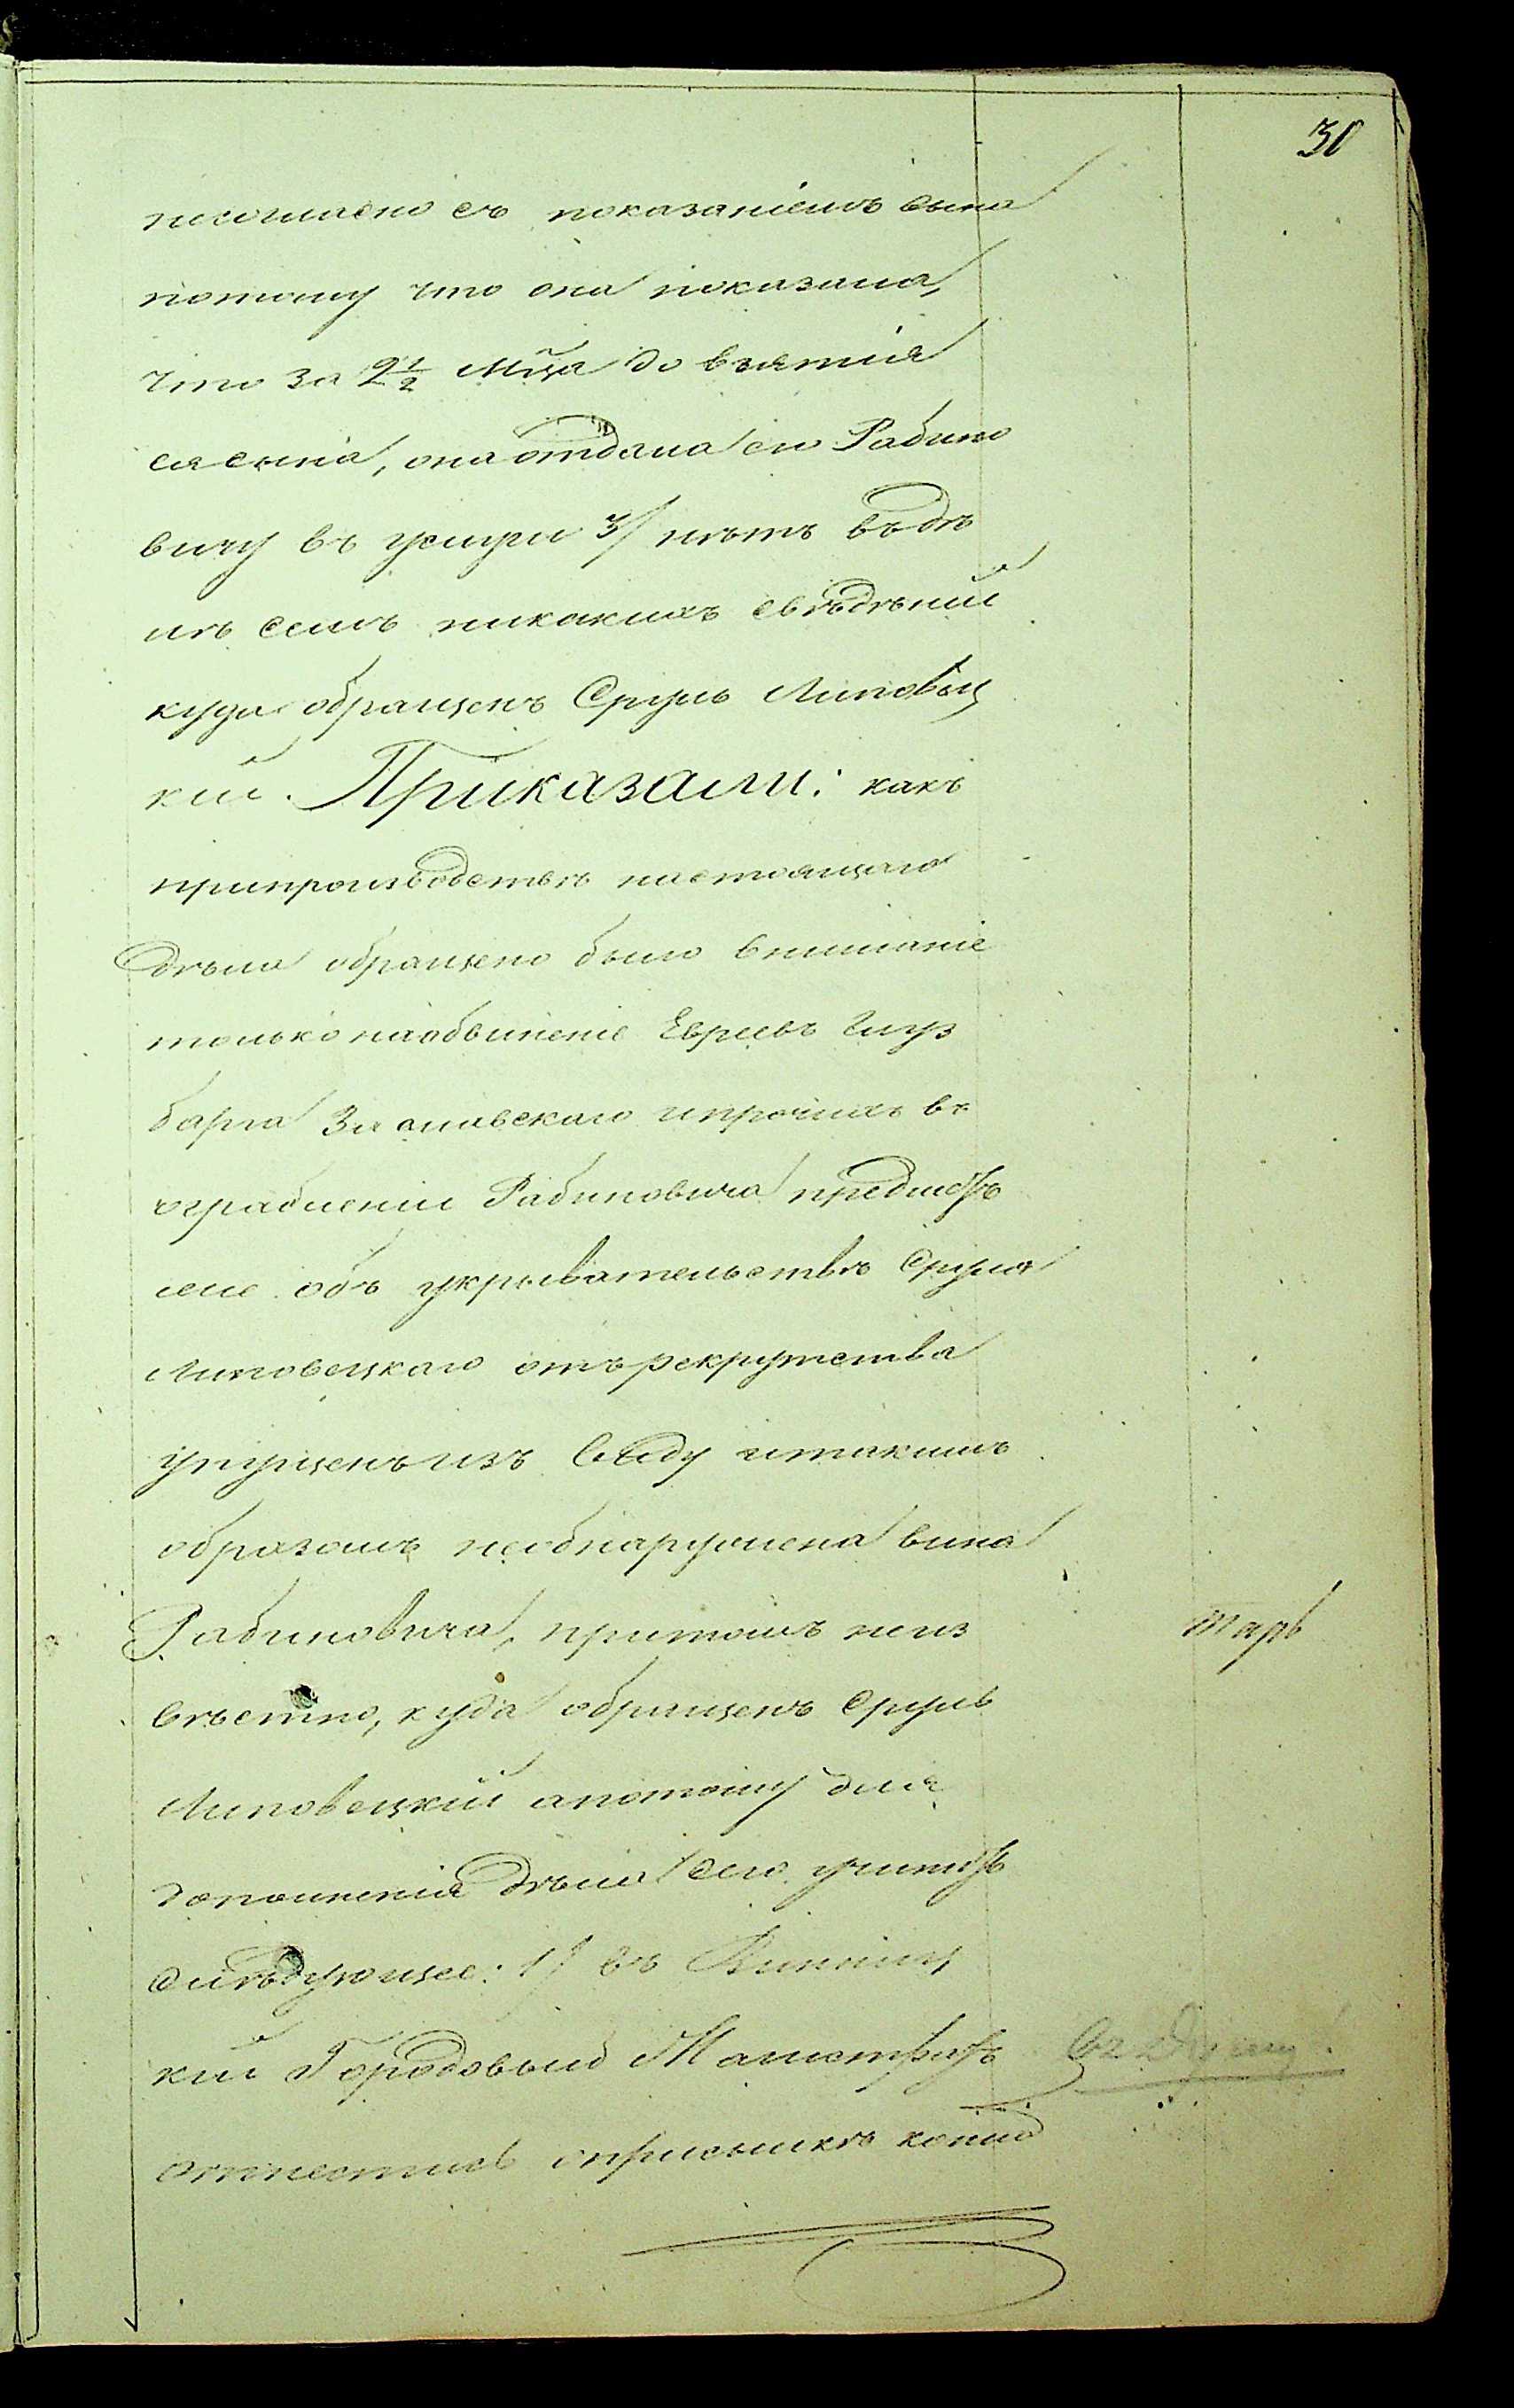 30
несогласно съ показаніемъ сына
потому что она показала,
что за 2½ Мца до взятія
ея сына, она отдала его Рабино
вичу въ услуги 3/ нѣтъ въ дѣ
лѣ семъ никакихъ свѣдѣній
куда обращенъ Сруль Липовец
кій. Приказали: какъ
при производствѣ настоящаго
дѣла обращено было вниманіе
только на обвиненіе Евреевъ Гинз
барга Заславскаго и прочихъ въ
ограбленіи Рабиновича предмѣтъ
же объ укрывательствѣ Сруля
Липовецкаго отъ рекрутства
упущенъ изъ виду и такимъ
образомъ необнаружена вина
Рабиновича, притомъ неиз
вѣстно, куда обращенъ Сруль
Липовецкій а потому для
дополненія дѣла сего учинить
слѣдующее: 1/ въ Винниц
кій Городовый Магистратъ
отнестись о присылкѣ копіи